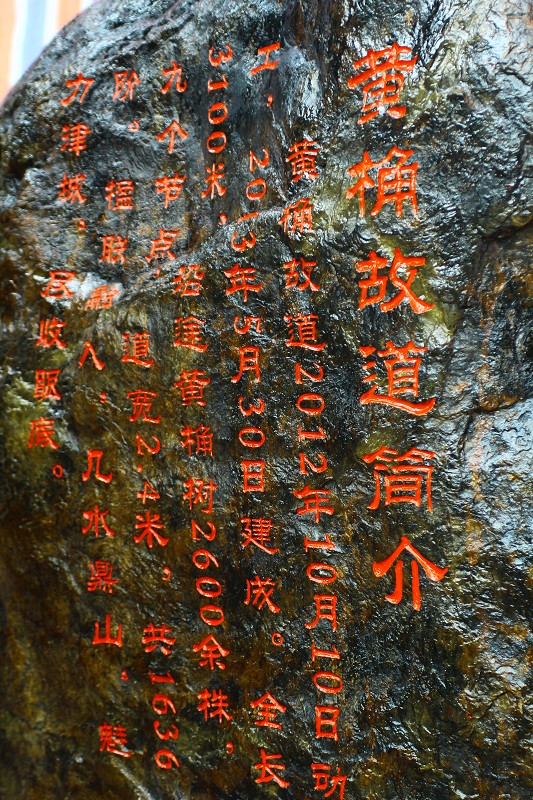 黄桷故道简介
黄桷故道2012年10月10日动
工，2013年5月30日建成。全长
3100米，沿途黄桷树2600余株，
九个节点，道宽2.4米，共1636
阶。胜人：几水鼎山，魅
力津城，尽收眼底。